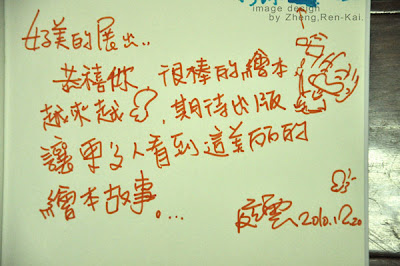 image design
by Zheng,Ren-Kai.
好美的展出..
恭禧你 很棒的繪本
越來越 ,期待出版
讓更多人看到這美丽的
繪本故事。...
雲 2010.12.20